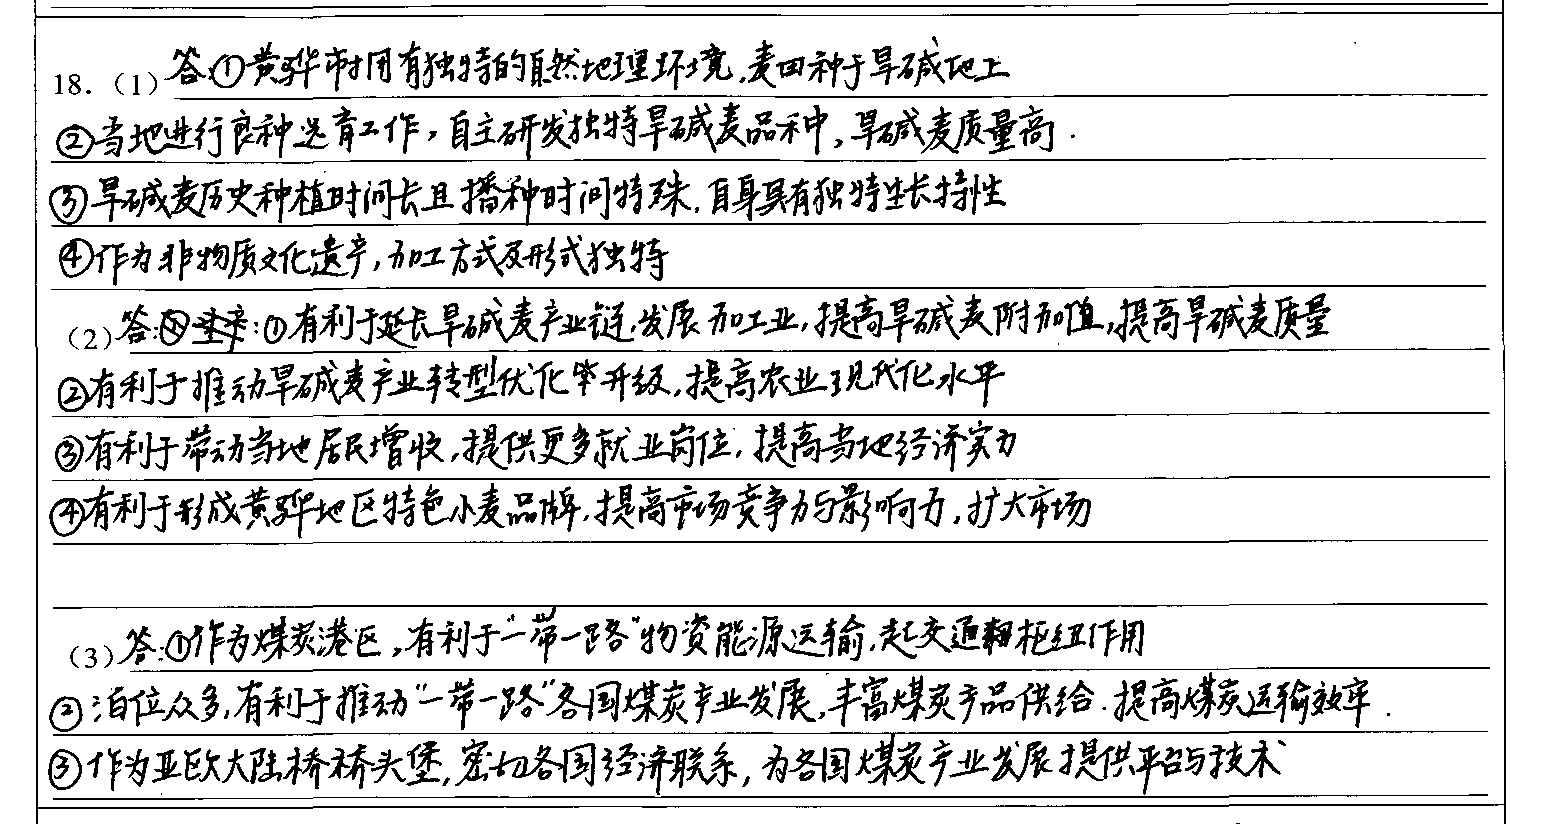 18.（1）答:①黄骅市拥有独特的自然地理环境,麦田种于旱碱地上
②当地进行良种选育工作,自主研发独特旱碱麦品种,旱碱麦质量高.
③旱碱麦历史种植时间长且播种时间特殊,自身具有独特生长特性
④作为非物质文化遗产,加工方式及形式独特
（2）答:①有利于延长旱碱麦产业链,发展加工业,提高旱碱麦附加值,提高旱碱麦质量
②有利于推动旱碱麦产业转型优化升级,提高农业现代化水平
③有利于带动当地居民增收,提供更多就业岗位,提高当地经济实力
④有利于形成黄骅地区特色小麦品牌,提高市场竞争力与影响力,扩大市场
（3）答:①作为煤炭港区,有利于“一带一路”物资能源运输,起交通枢纽作用
②泊位众多,有利于推动“一带一路”各国煤炭产业发展,丰富煤炭产品供给.提高煤炭运输效率.
③作为亚欧大陆桥桥头堡,密切各国经济联系,为各国煤炭产业发展提供平台与技术